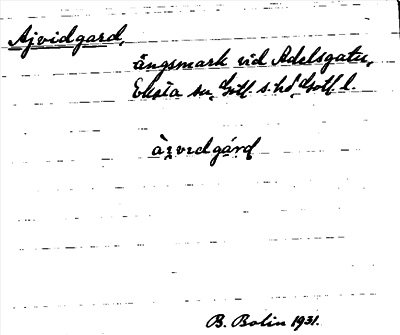 Ajvidgard,
ängsmark vid Adelsgatu,
Eksta sn, Gotl. s. hd, Gotl. l.
àịvıdgárḍ
B. Bolin 1931.